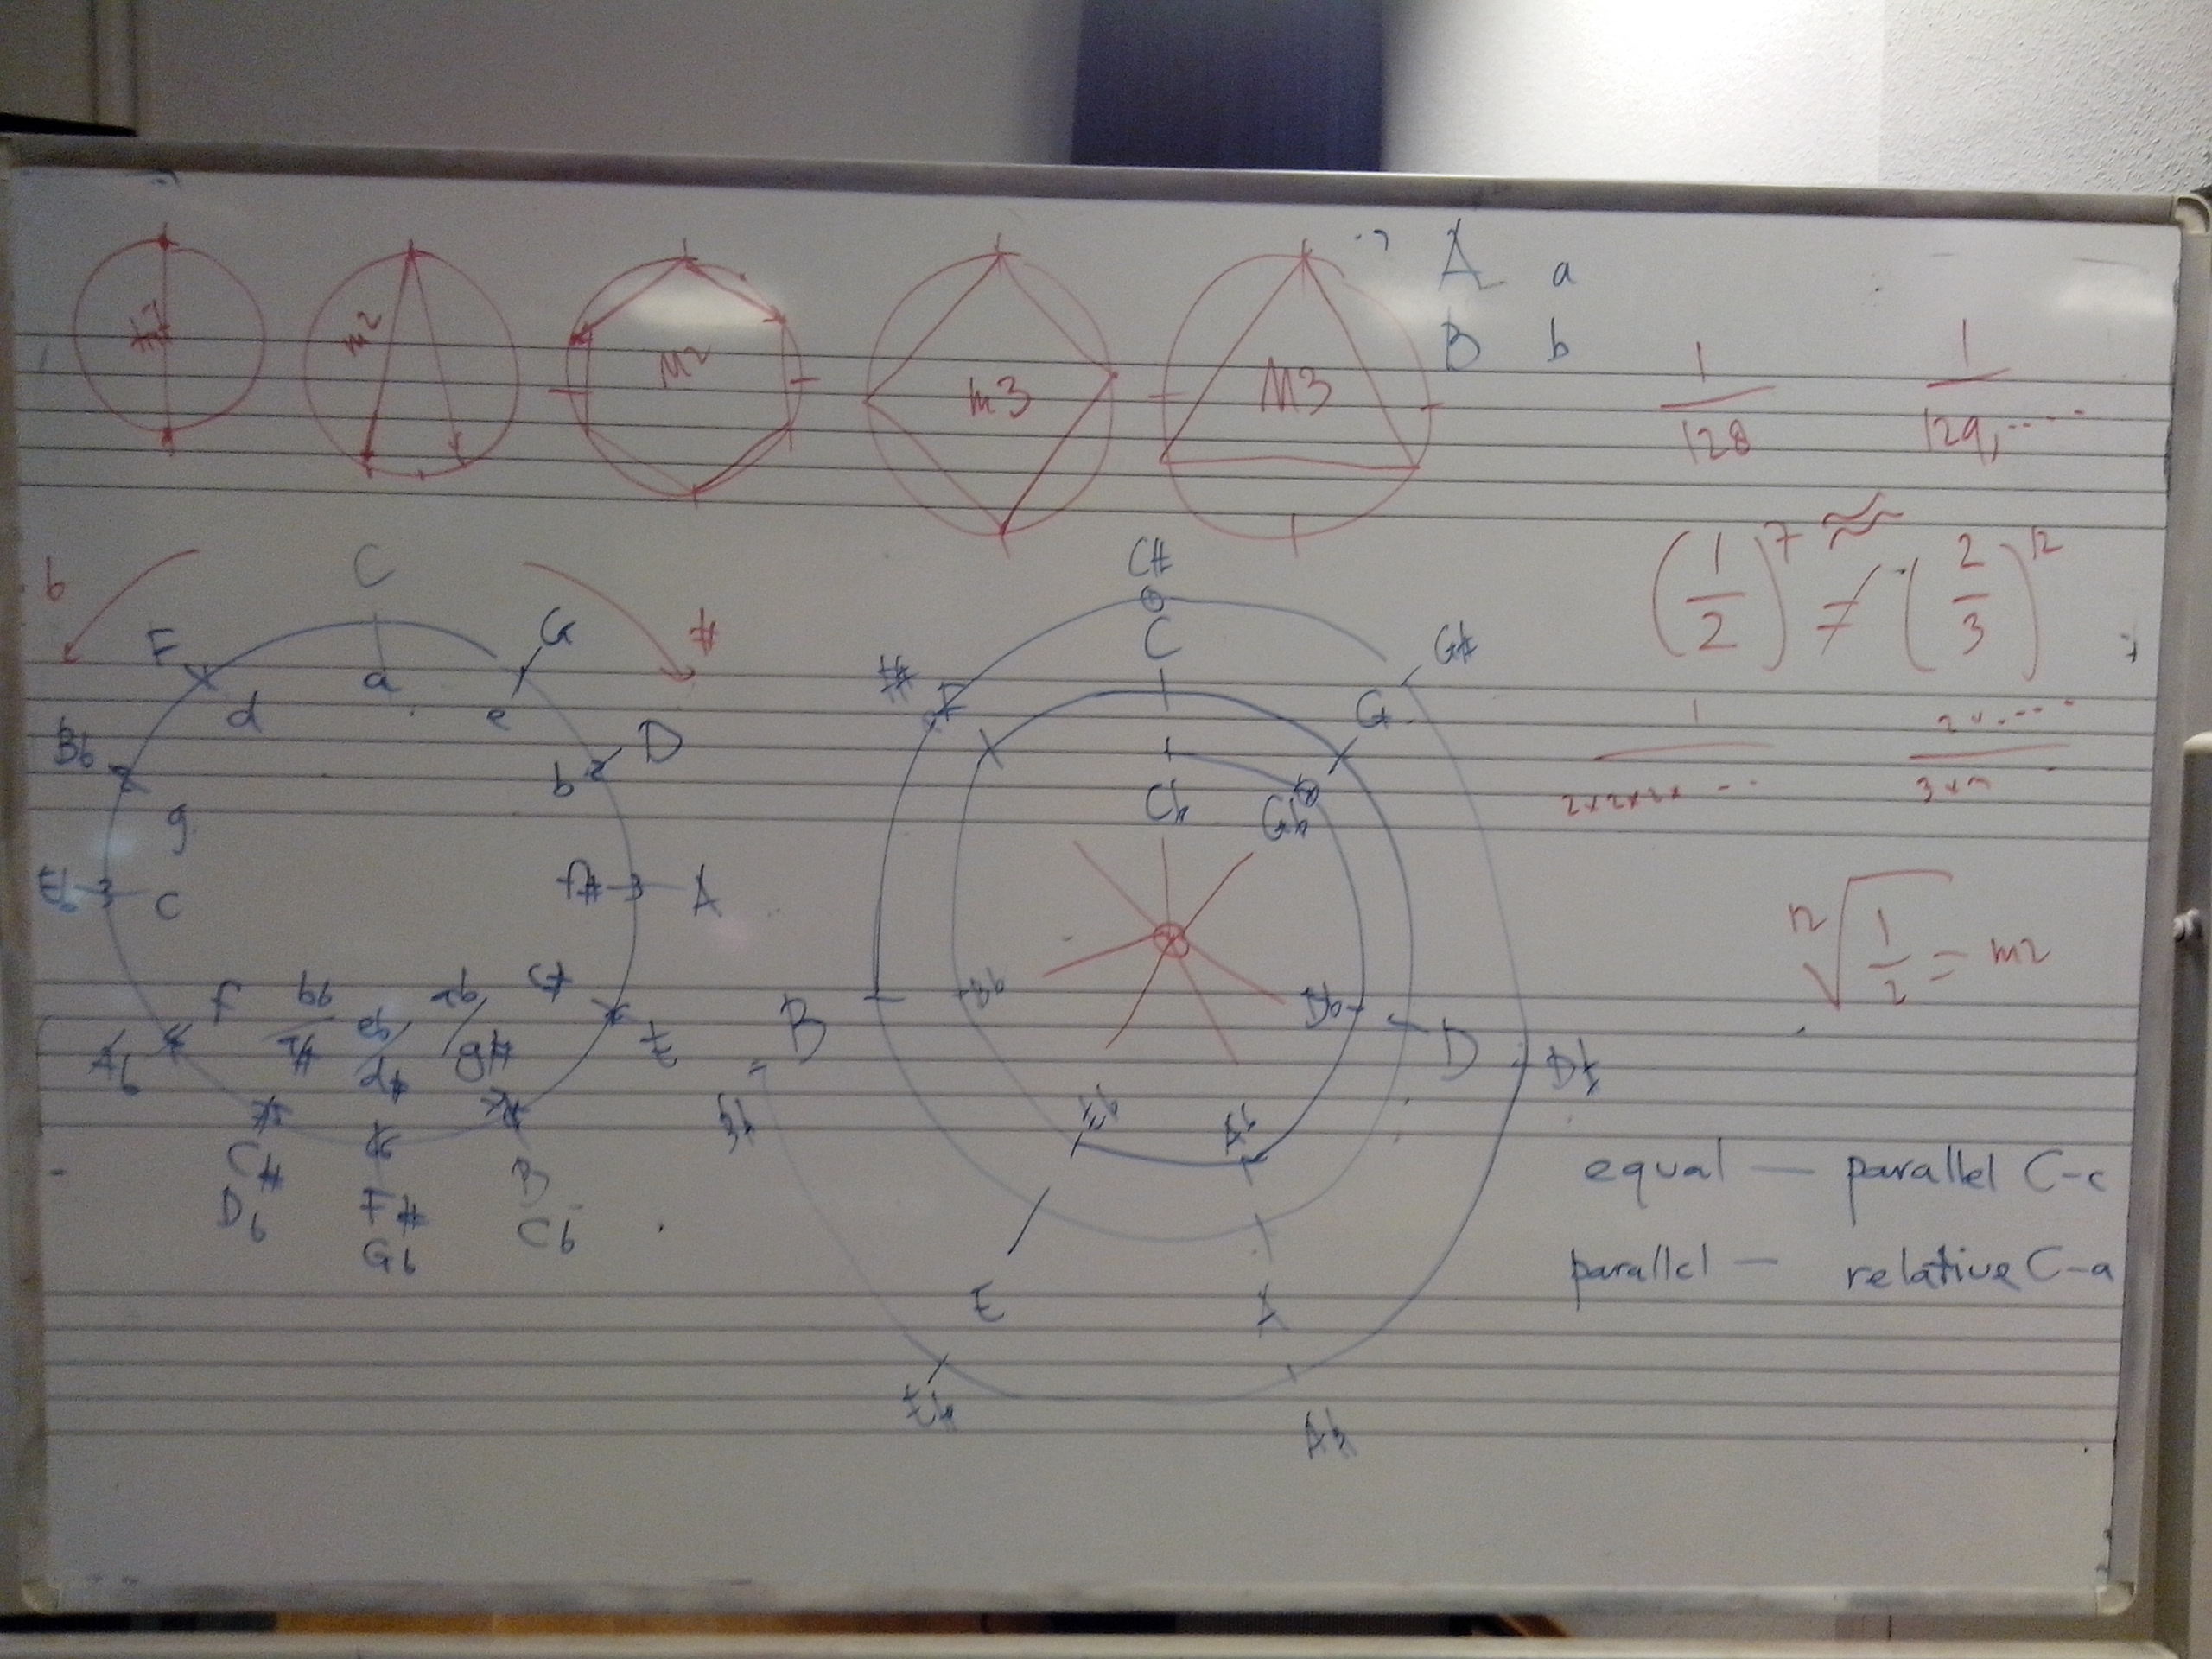 m2
M2
m3
M3
A a
B b
1
128
1
129,....
(1/2)^7 ≈ ≠ (2/3)^12
1
2x2x2x ...
2x....
3x
12√1/2 = m2
b
#
C
F
G
a
d
e
Bb
D
g
b
Eb
c
f#
A
f
bb
eb
d#
g#
c#
Ab
E
C#
Db
F#
Gb
B
Cb
C#
C
G#
#
F
G
Cb
Gb
B
Bb
Db
D
D#
Eb
Ab
E
A
E#
A#
B#
equal — parallel C-c
parallel — relative C-a